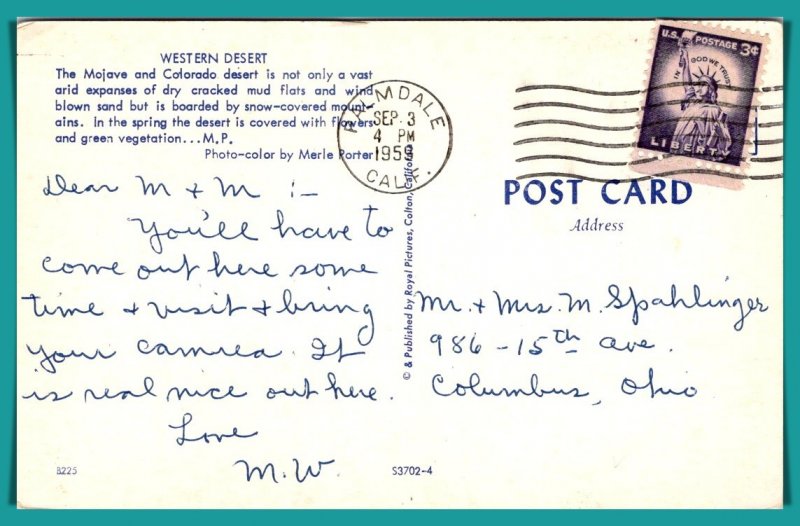 WESTERN DESERT
The Mojave and Colorado desert is not only a vast
arid expanses of dry cracked mud flats and wind
blown sand but is boarded by snow-covered mount-
ains. In the spring the desert is covered with flowers
and green vegetation...M.P.
Photo-color by Merle Porter
PALMDALE
SEP 3
4 PM
1959
CALIF.
U.S. POSTAGE 3¢
IN GOD WE TRUST
LIBERTY
Dear M + M :-
You'll have to
come out here some
time + visit + bring
your camrea. It
is real nice out here.
Love
M.W.
B225
S3702-4
© & Published by Royal Pictures, Colton, California
POST CARD
Address
Mr. + Mrs. M. Spahlinger
986 - 15th ave.
Columbus, Ohio